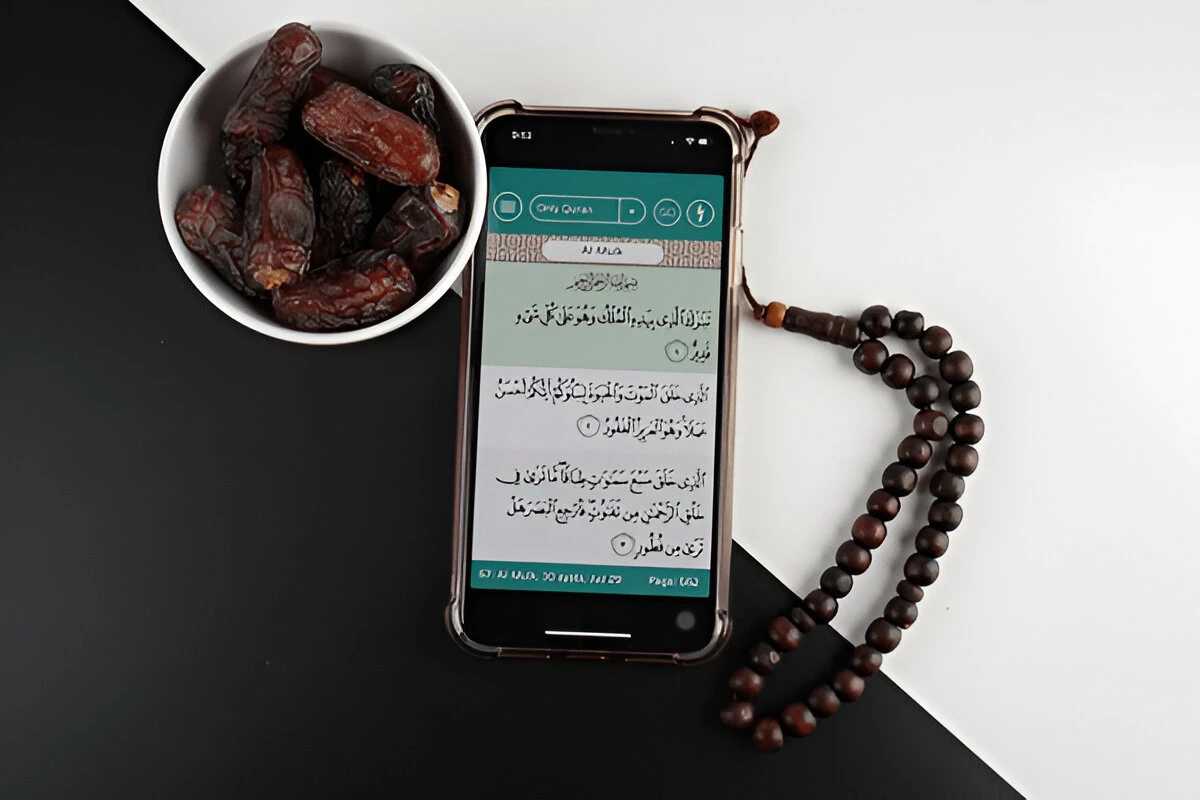 Only Quran
Al Mulk
بِسْمِ ٱللَّهِ ٱلرَّحْمَٰنِ ٱلرَّحِيمِ
تَبَٰرَكَ ٱلَّذِى بِيَدِهِ ٱلْمُلْكُ وَهُوَ عَلَىٰ كُلِّ شَىْءٍ
قَدِيرٌ ١
ٱلَّذِى خَلَقَ ٱلْمَوْتَ وَٱلْحَيَوٰةَ لِيَبْلُوَكُمْ أَيُّكُمْ أَحْسَنُ
عَمَلًا وَهُوَ ٱلْعَزِيزُ ٱلْغَفُورُ ٢
ٱلَّذِى خَلَقَ سَبْعَ سَمَٰوَٰتٍ طِبَاقًا مَّا تَرَىٰ فِى
خَلْقِ ٱلرَّحْمَٰنِ مِن تَفَٰوُتٍ فَٱرْجِعِ ٱلْبَصَرَ هَلْ
تَرَىٰ مِن فُطُورٍ ٣
Al Mulk, 30 Page: